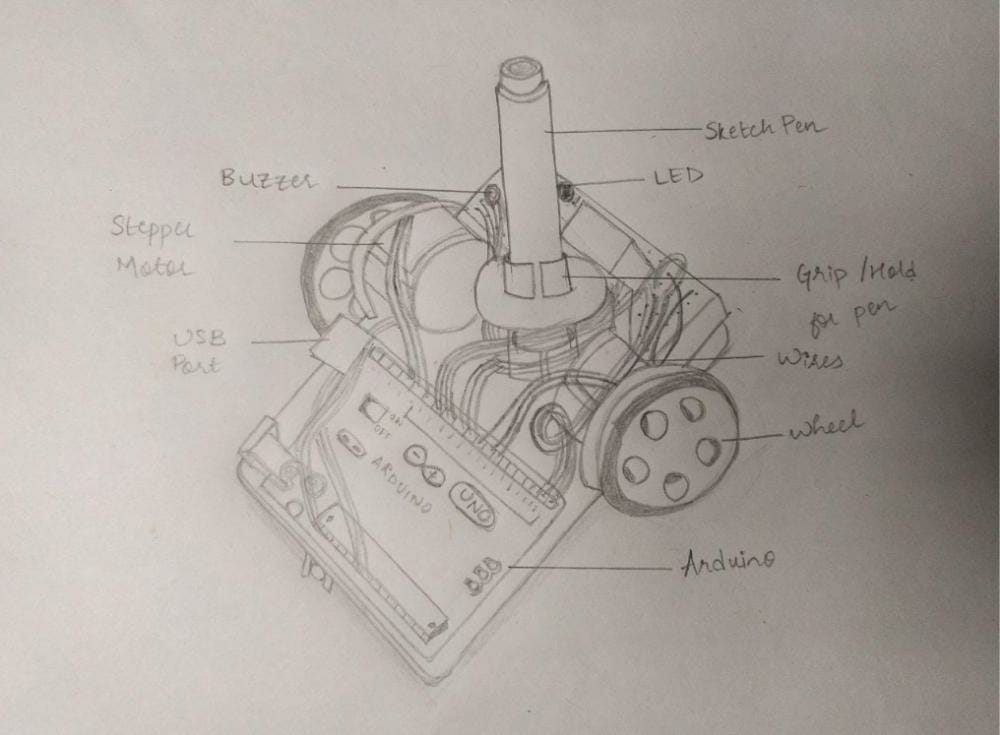 Sketch Pen
Buzzer
LED
Stepper
Motor
Grip /Hold
for pen
USB
Port
Wires
Wheel
ON
OFF
ARDUINO
UNO
Arduino